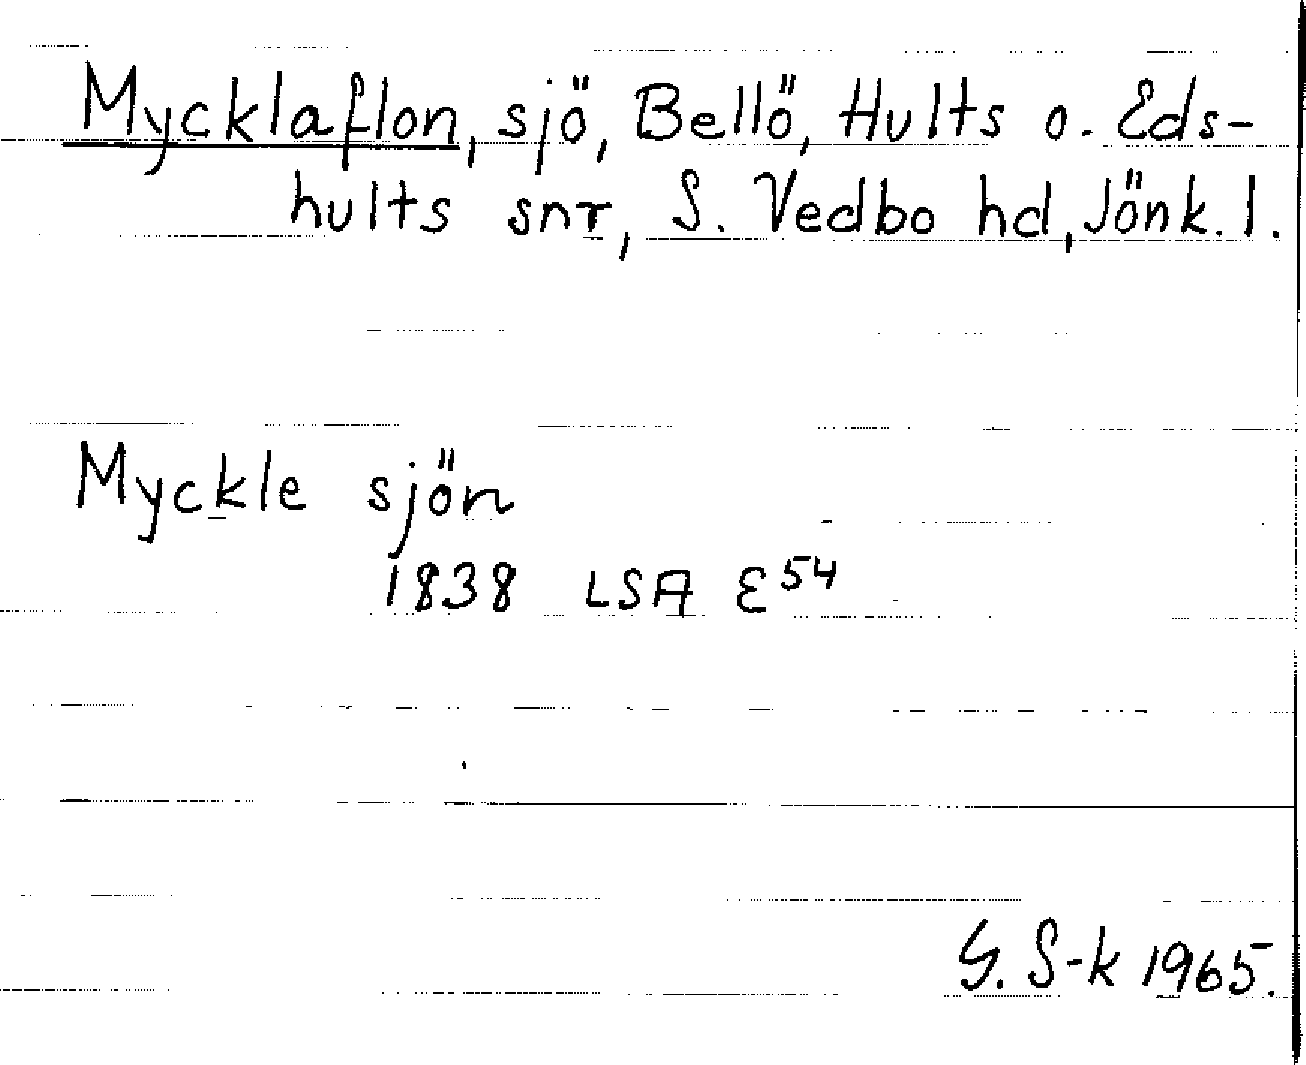 Mycklaflon, sjö, Bellö, Hults o. Eds-
hults snr, S. Vedbo hd, Jönk. l.
Myckle sjön
1838 LSA E54
G. S-k 1965.